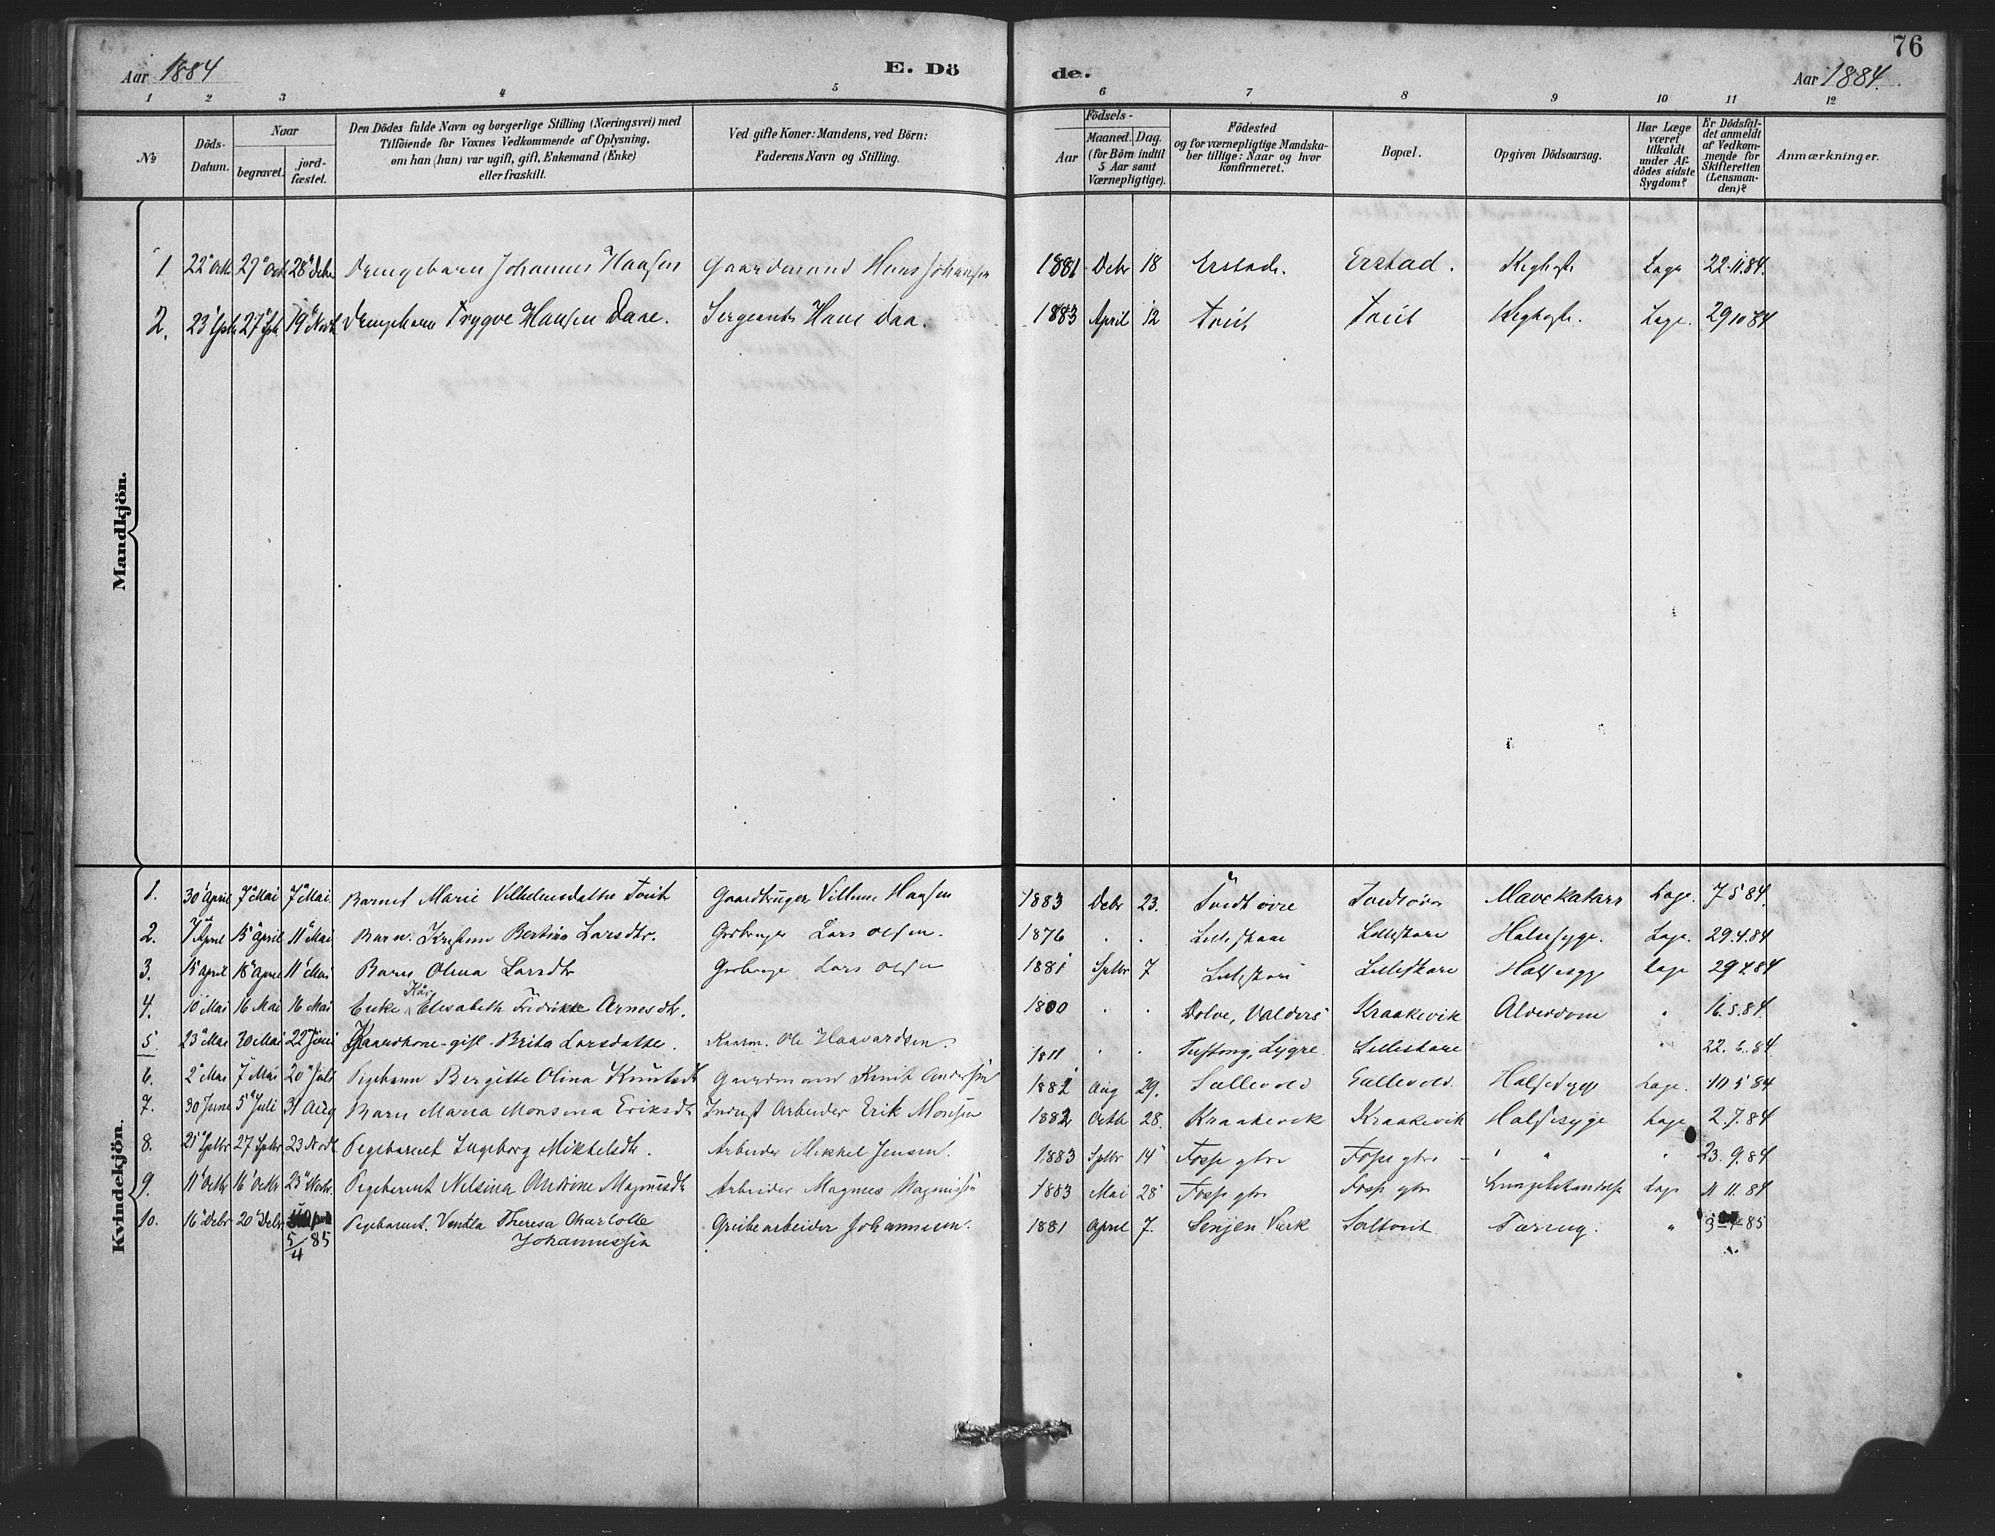 76
Aar 1884
E. Dö
de.
Aar 1884.
1 2 3 4 5 6 7 8 9 10 11 12
№
Döds-Datum.
Naar
begravet.
jord-fæstet.
Den Dödes fulde Navn og borgerlige Stilling (Næringsvei) med
Tilföiende for Voxnes Vedkommende af Oplysning,
om han (hun) var ugift, gift, Enkemand (Enke)
eller fraskilt.
Ved gifte Koner: Mandens, ved Börn:
Faderens Navn og Stilling.
Födsels-
Aar
Maaned. Dag.
(for Börn indtil
5 Aar samt
Værnepligtige).
Födested
og for værnepligtige Mandska-
ber tillige: Naar og hvor
konfirmeret.
Bopæl.
Opgiven Dödsaarsag.
Har Læge
været
tilkaldt
under Af-
dödes sidste
Sygdom?
Er Dödsfal-
det anmeldt
af Vedkom-
mende for
Skifteretten
(Lensman-
den)?
Anmærkninger.
Mandkjön.
1 22 Octb 29 Octb 28 Debr Drengebarn Johannes Hansen Gaardmand Hans Johansen 1881 Debr 18 Erstad. Erstad. Kighoste Læge 22.11.84.
2. 23 Sptb 27 Sptb 19 Novb Drengebarn Trygve Hansen Daae. Sergeant Hans Daa. 1883 April 12 Tveit Tveit Kighoste. Læge. 29 10 84
Kvindekjön.
1. 30 April 7 Mai 7 Mai Barnet Marie Vilhelmsdatter Tveit Gaardbruger Villum Hansen 1883 Debr 23. Tvedt övre Tvedt övre Mavekatarr Læge. 7 5 84.
2. 7 April 15 April 11 Mai Barn. Bertine Larsdtr. Grdbruger Lars Olsen. 1876 . . Lilleskare Lilleskare Halsesyge. Læge. 29.4.84
3. 15 April 18 April 11 Mai Barn Olina Larsdtr Grdbruge Lars Olsen 1881 Sptbr 7 Lilleskare Lilleskare Halsesyge Læge 29 4.84
4. 10 Mai 16 Mai 16 Mai Enke Elisabeth Fredrikke Arnesdtr. 1800 . . Volve, Valders Kraakevik Alderdom " 16.5.84.
5 23 Mai 30 Mai 22 Juni Gaardkone-gift- Brita Larsdatter. Kaarm. Ole Haavardsen. 1811 . . Lygre. Lilleskare " 22.6.84
6. 2 Mai 7 Mai 20 Juli Pigebarn Birgitte Olina Knutsdtr Gaardmand Knut Andersen 1882 Aug 29. Sællevold Sællevold. Halsesyge Læge. 10 5 84
7. 30 Juni 5 Juli 31 Aug Barn Maria Monsina Eriksdtr Indust Arbeider Erik Monsen 1882 Octb 28. Kraakevik Kraakevik Halsesyge Læge 2.7.84
8. 21 Sptbr 27 Sptbr 23 Novb Pigebarnet Ingeborg Mikkelsdtr. Arbeider Mikkel Jensen. 1883 Sptbr 14 Fosse ytre Fosse ytre - " " " 23.9.84
9. 11 Octbr 16 Octbr 23 Novbr. Pigebarnet Nilsina Andrine Magnusdtr Arbeider Magnus Magnusen 1883 Mai 28 Fosse ytre Fosse ytre Lungebetændelse Læge 11 11.84
10. 16 Debr 20 Debr 5/4 85 Pigebarnet. Vendla Theresa Charlotte Johannessen Grubearbeider Johannessen. 1881 April 7. Senjen Værk Saltveit Tæring. " 85